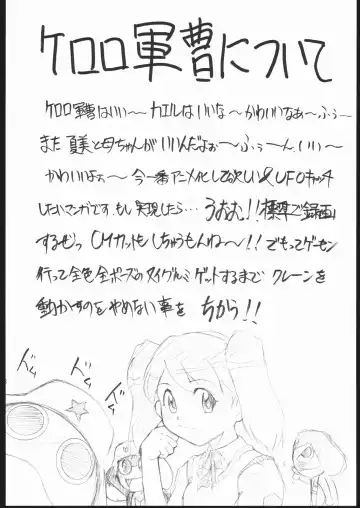 ケロロ軍曹について
ケロロ軍曹はいい〜カエルはいいな〜かわいいなぁ〜ふぅ〜
また夏美と母ちゃんがいいんだよぉ〜ふぅーん、いい〜
かわいいよぉ〜今一番アニメ化して欲しい&UFOキャッチ
したいマンガです。もし実現したら…うおお!!標準で録画
するぜっCMカットもしちゃうもんね〜!!でもってゲーセン
行って全色全ポーズのヌイグルミゲットするまでクレーンを
動かすのをやめない事をちかう!!
ドム
ドム
ドム